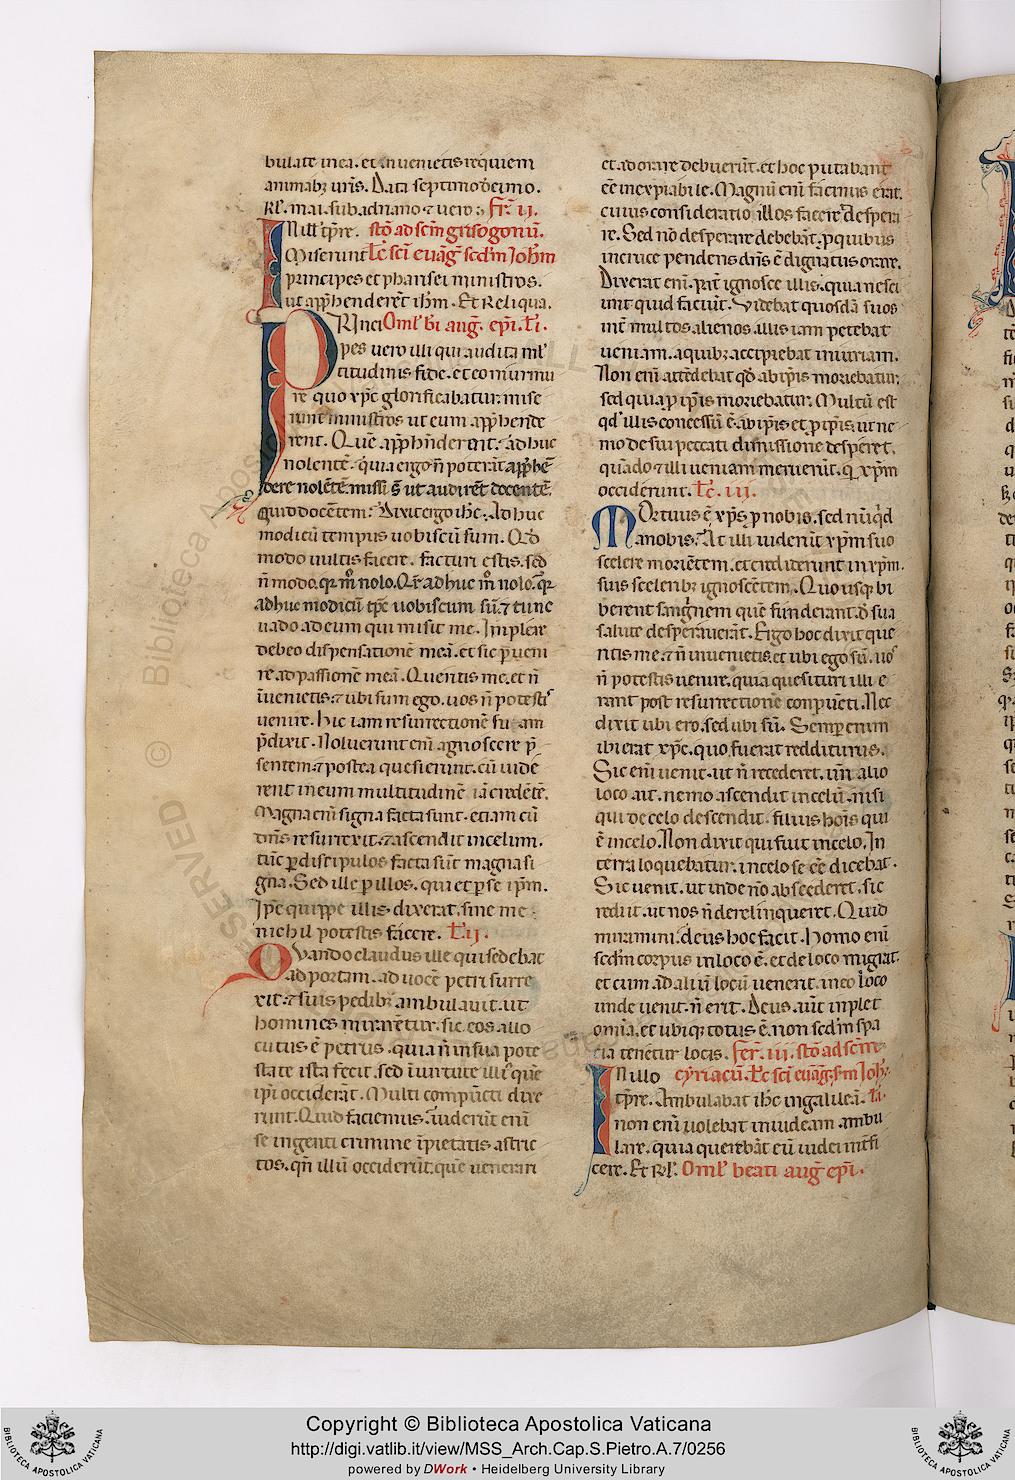 bulate mea. et inuenietis requiem
animabꝫ ur̄is. Data septimodecimo.
kl̄. mai. sub adriano ⁊ uero 
fr̄. ii.
INill' tp̄re. stō ad scm̄ grisogonū.
Miserunt lc̄ sci euāg. scdm̄ Ioh̄m
principes et pharisei ministros.
ut app̄henderēt ih̄m. Et Reliqua.
PRInci Oml' bi aug. ep̄i. l'. i.
pes uero illi qui audita ml'
titudinis fide. et eo murmu
re quo xp̄c glorificabatur. mise
runt ministros ut eum app̄hende
rent. Quē app̄hn̄derent. adhuc
nolentē. quia ergo n̄ poterāt app̄hē
dere nolētē. missi s̄ ut audirēt docentē.
Quid docētem. Dixit ergo ih̄c. Adhuc
modicū tempus uobiscū sum. Qd̄
modo uultis facere. facturi estis. sed
n̄ modo. qr m̊ nolo. Qr̄ adhuc m̊ nolo. qr
adhuc modicū tp̄c uobiscum sū. ⁊ tunc
uado ad eum qui misit me. Implere
debeo dispensationē meā. et sic ꝑueni
re ad passionē meā. Queritis me. et n̄
īuenietis. ⁊ ubi sum ego. uos n̄ potestis
uenire. hic iam resurrectionē suam
p̄dixit. Noluerunt eni agnoscere p̄
sentem. ⁊ postea quesierunt. cū uidē
rent in eum multitudinē iā credētē.
Magna eni signa facta sunt. etiam cū
dn̄s resurrexit. ⁊ ascendit in celum.
tūc ꝑ discipulos facta sūt magna si
gna. Sed ille ꝑ illos. qui et ꝑ se ip̄m.
Ip̄e quippe illis dixerat. sine me
nichil potestis facere. l'. ij.
QVando claudus ille qui sedebat
ad portam. ad uocē petri surre
xit. ⁊ suis pedibꝫ ambulauit. ut
homines mirarētur. sic eos allo
cutus ē petrus. quia n̄ in sua pote
state ista fecit. sed ī uirtute illiꝰ quē
ip̄i occiderāt. Multi compūcti dixe
runt. Quid faciemus. Uiderūt enī
se ingenti crimine īpietatis astric
tos. qn̄ illū occiderūt. quē uenerari
et adorare debuerūt. et hoc putabant
eē inexpiabile. Magnū enī facinus erat.
cuius consideratio illos facere despera
re. Sed nō desperare debebāt. ꝑ quibus
in cruce pendens dn̄s ē dignatus orare.
Dixerat enī. pat̄ ignosce illis. quia nesci
unt quid faciūt. Videbat quosdā suos
int̄ multos alienos. illis iam petebat
ueniam. a quibꝫ accipiebat iniuriam.
Non enī attēdebat qd̄ ab ip̄is moriebatur.
sed quia ꝑ ip̄is moriebatur. Multū est
qd' illis concessū ē. ab ip̄is et ꝑ ip̄is. ut ne
mo de sui peccati dimissione desperet.
quādo ⁊ illi ueniam meruerūt. q̄ xp̄m
occiderunt. l'c̄. iii.
MOrtuus ē xp̄s ꝓ nobis. sed nūqd
a nobis. At illi uiderūt xp̄m suo
scelere moriētem. et crediderunt in xp̄m.
suis sceleribꝫ ignoscētem. Quousqꝫ bi
berent sanguinem quē funderant. d̄ sua
salute desperauerāt. Ergo hoc dixit que
ritis me. ⁊ n̄ inuenietis. et ubi ego sū. uoˢ
n̄ potestis uenire. quia quesituri illi e
rant post resurrectionē conpūcti. Nec
dixit ubi ero. sed ubi sū. Semꝑ enim
ibi erat xp̄c. quo fuerat redditurus.
Sic eni uenit. ut n̄ recederet. un̄ alio
loco ait. nemo ascendit in celū. nisi
qui de celo descendit. filius hoīs qui
ē in celo. Non dixit qui fuit in celo. In
terra loquebatur. in celo se eē dicebat.
Sic uenit. ut inde nō abscederet. sic
rediit. ut nos n̄ derelinqueret. Quid
miramini. deus hoc facit. Homo enī
scdm̄ corpus in loco ē. et de loco migrat.
et cum ad aliū locū uenerit. in eo loco
unde uenit. n̄ erit. Deus aūt implet
omīa. et ubiqꝫ totus ē. non scdm̄ spa
cia tenētur locis. fer̄. iii. stō ad scm̄
INillo cyriacū. lc̄ sci euāg. sm̄ Ioh̄.
tp̄re. Ambulabat ih̄c in galileā.
non enī uolebat in iudeam ambu
lare. quia querebāt eū iudei int̄fi
cere. Et Rl'. Oml' beati aug ep̄i.
Copyright © Biblioteca Apostolica Vaticana
http://digi.vatlib.it/view/MSS_Arch.Cap.S.Pietro.A.7/0256
powered by DWork • Heidelberg University Library
BIBLIOTECA APOSTOLICA VATICANA
BIBLIOTECA APOSTOLICA VATICANA